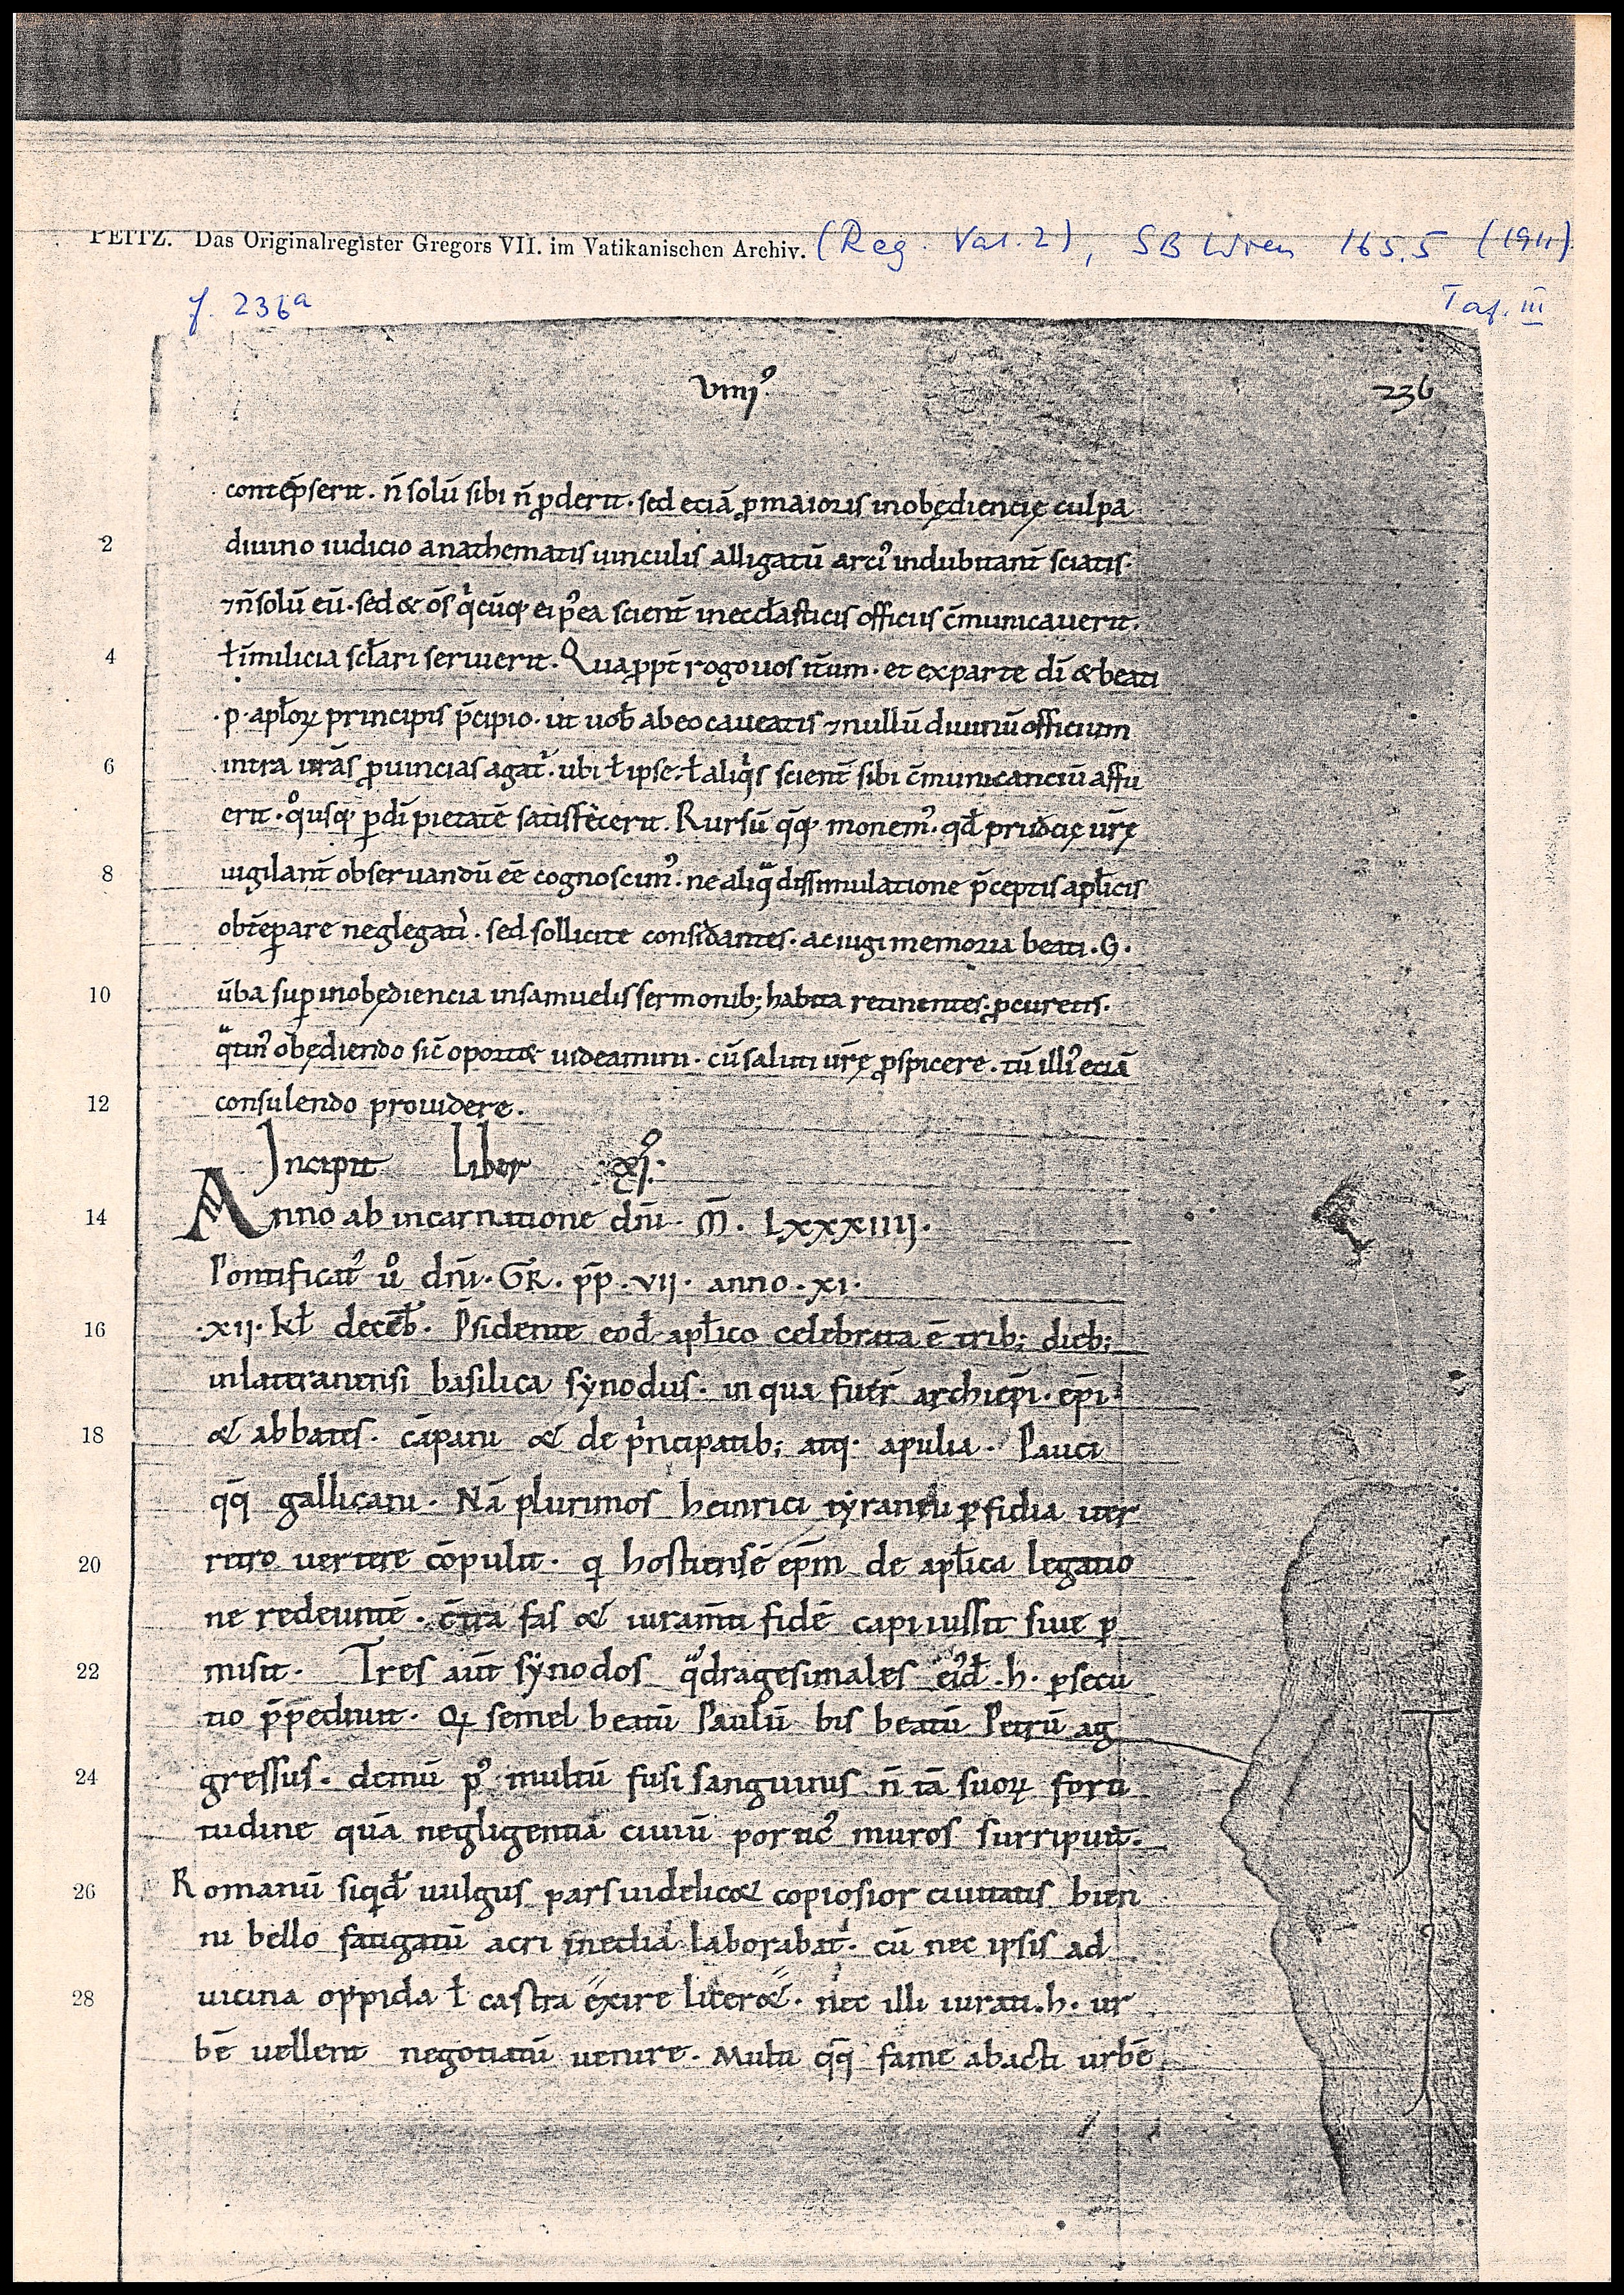 PEITZ. Das Originalregister Gregors VII. im Vatikanischen Archiv. (Reg. Vat. 2), SB Wien 165.5 (1911)
f. 236a Taf. III
VIIIJº 236
contēpserit. n̄ solū sibi n̄ ꝓderit. sed eciā ꝓ maioris inobędiencię culpa
2 diuino iudicio anathematis uinculis alligatū arciꝰ indubitant̄ sciatis.
⁊ n̄ solū eū. sed & om̄s qͥcūq; ei pꝰea scient̄ in eccl̄asticis officiis c̄municauerit.
4 ł in milicia scl̄ari seruierit. Quaꝓpt̄ rogo uos it̄um. et ex parte dī & beati
.p. apl̄oꝝ principis p̄cipio. ut uob̄ ab eo caueatis ⁊ nullū diuinū officium
6 intra ur̄as ꝓuincias agat᷑. ubi ł ipse. ł aliqͥs scient̄ sibi c̄municanciū affu
erit. qͦusq; ꝑ dī pietatē satisfecerit. Rursū qͦq; monemꝰ. qd̄ prudēcię ur̄ę
8 uigilant̄ obseruandū ēē cognoscimꝰ. ne aliqͣ dissimulatione p̄ceptis apl̄icis
obtēꝑare neglegati᷑. sed sollicite considantes. ac iugi memoria beati .G.
10 ūba suꝑ inobędiencia in samuelis sermonib; habita retinentes. ꝓcuretis.
qͣtinꝰ obędiendo sic̄ oportet uideamini. cū saluti ur̄ę ꝓspicere. tū illiꝰ eciā
12 consulendo prouidere.
Incipit Liber XIº.
14 Anno ab incarnatione dn̄i. M̄. LXXXIIIJ.
Pontificatꝰ uͦ dn̄i. GR̄. pp̄. VII. anno. XI.
16 .XII. kł decēb̄. P̄sidente eod̄ apl̄ico celebrata ē trib; dieb;
in lateranensi basilica sẏnodus. in qua fuer̄ archiep̄i. ep̄i
18 & abbates. cāpani & de pͥncipatib; atq; apulia. Pauci
qͦq̄ gallicani. Nā plurimos heinrici tẏranni ꝑfidia iter
20 retro uertere cōpulit. q hostiensē ep̄m de apl̄ica legatio
ne redeuntē. c̄tra fas & iuram̄ti fidē capi iussit siue ꝑ
22 misit. Tres aut̄ sẏnodos qͣdragesimales eiꝰd̄ .h. ꝑsecu
tio p̄pediuit. Qꝛ semel beatū Paulū bis beatū Petrū ag
24 gressus. demū pꝰ multū fusi sanguinis n̄ tā suoꝝ forti
tudine quā negligentiā ciuiū porticꝰ muros surripuit.
26 Romanū siqd̄ uulgus pars uidelic& copiosior ciuitatis bien
ni bello fatigatū acri inedia laborabat᷑. cū nec ipsis ad
28 uicina oppida ł castra exire licer&. nec illi iurati .h. ur
bē uellent negotiatū uenire. Multi qͦq̄ fame abacti urbē